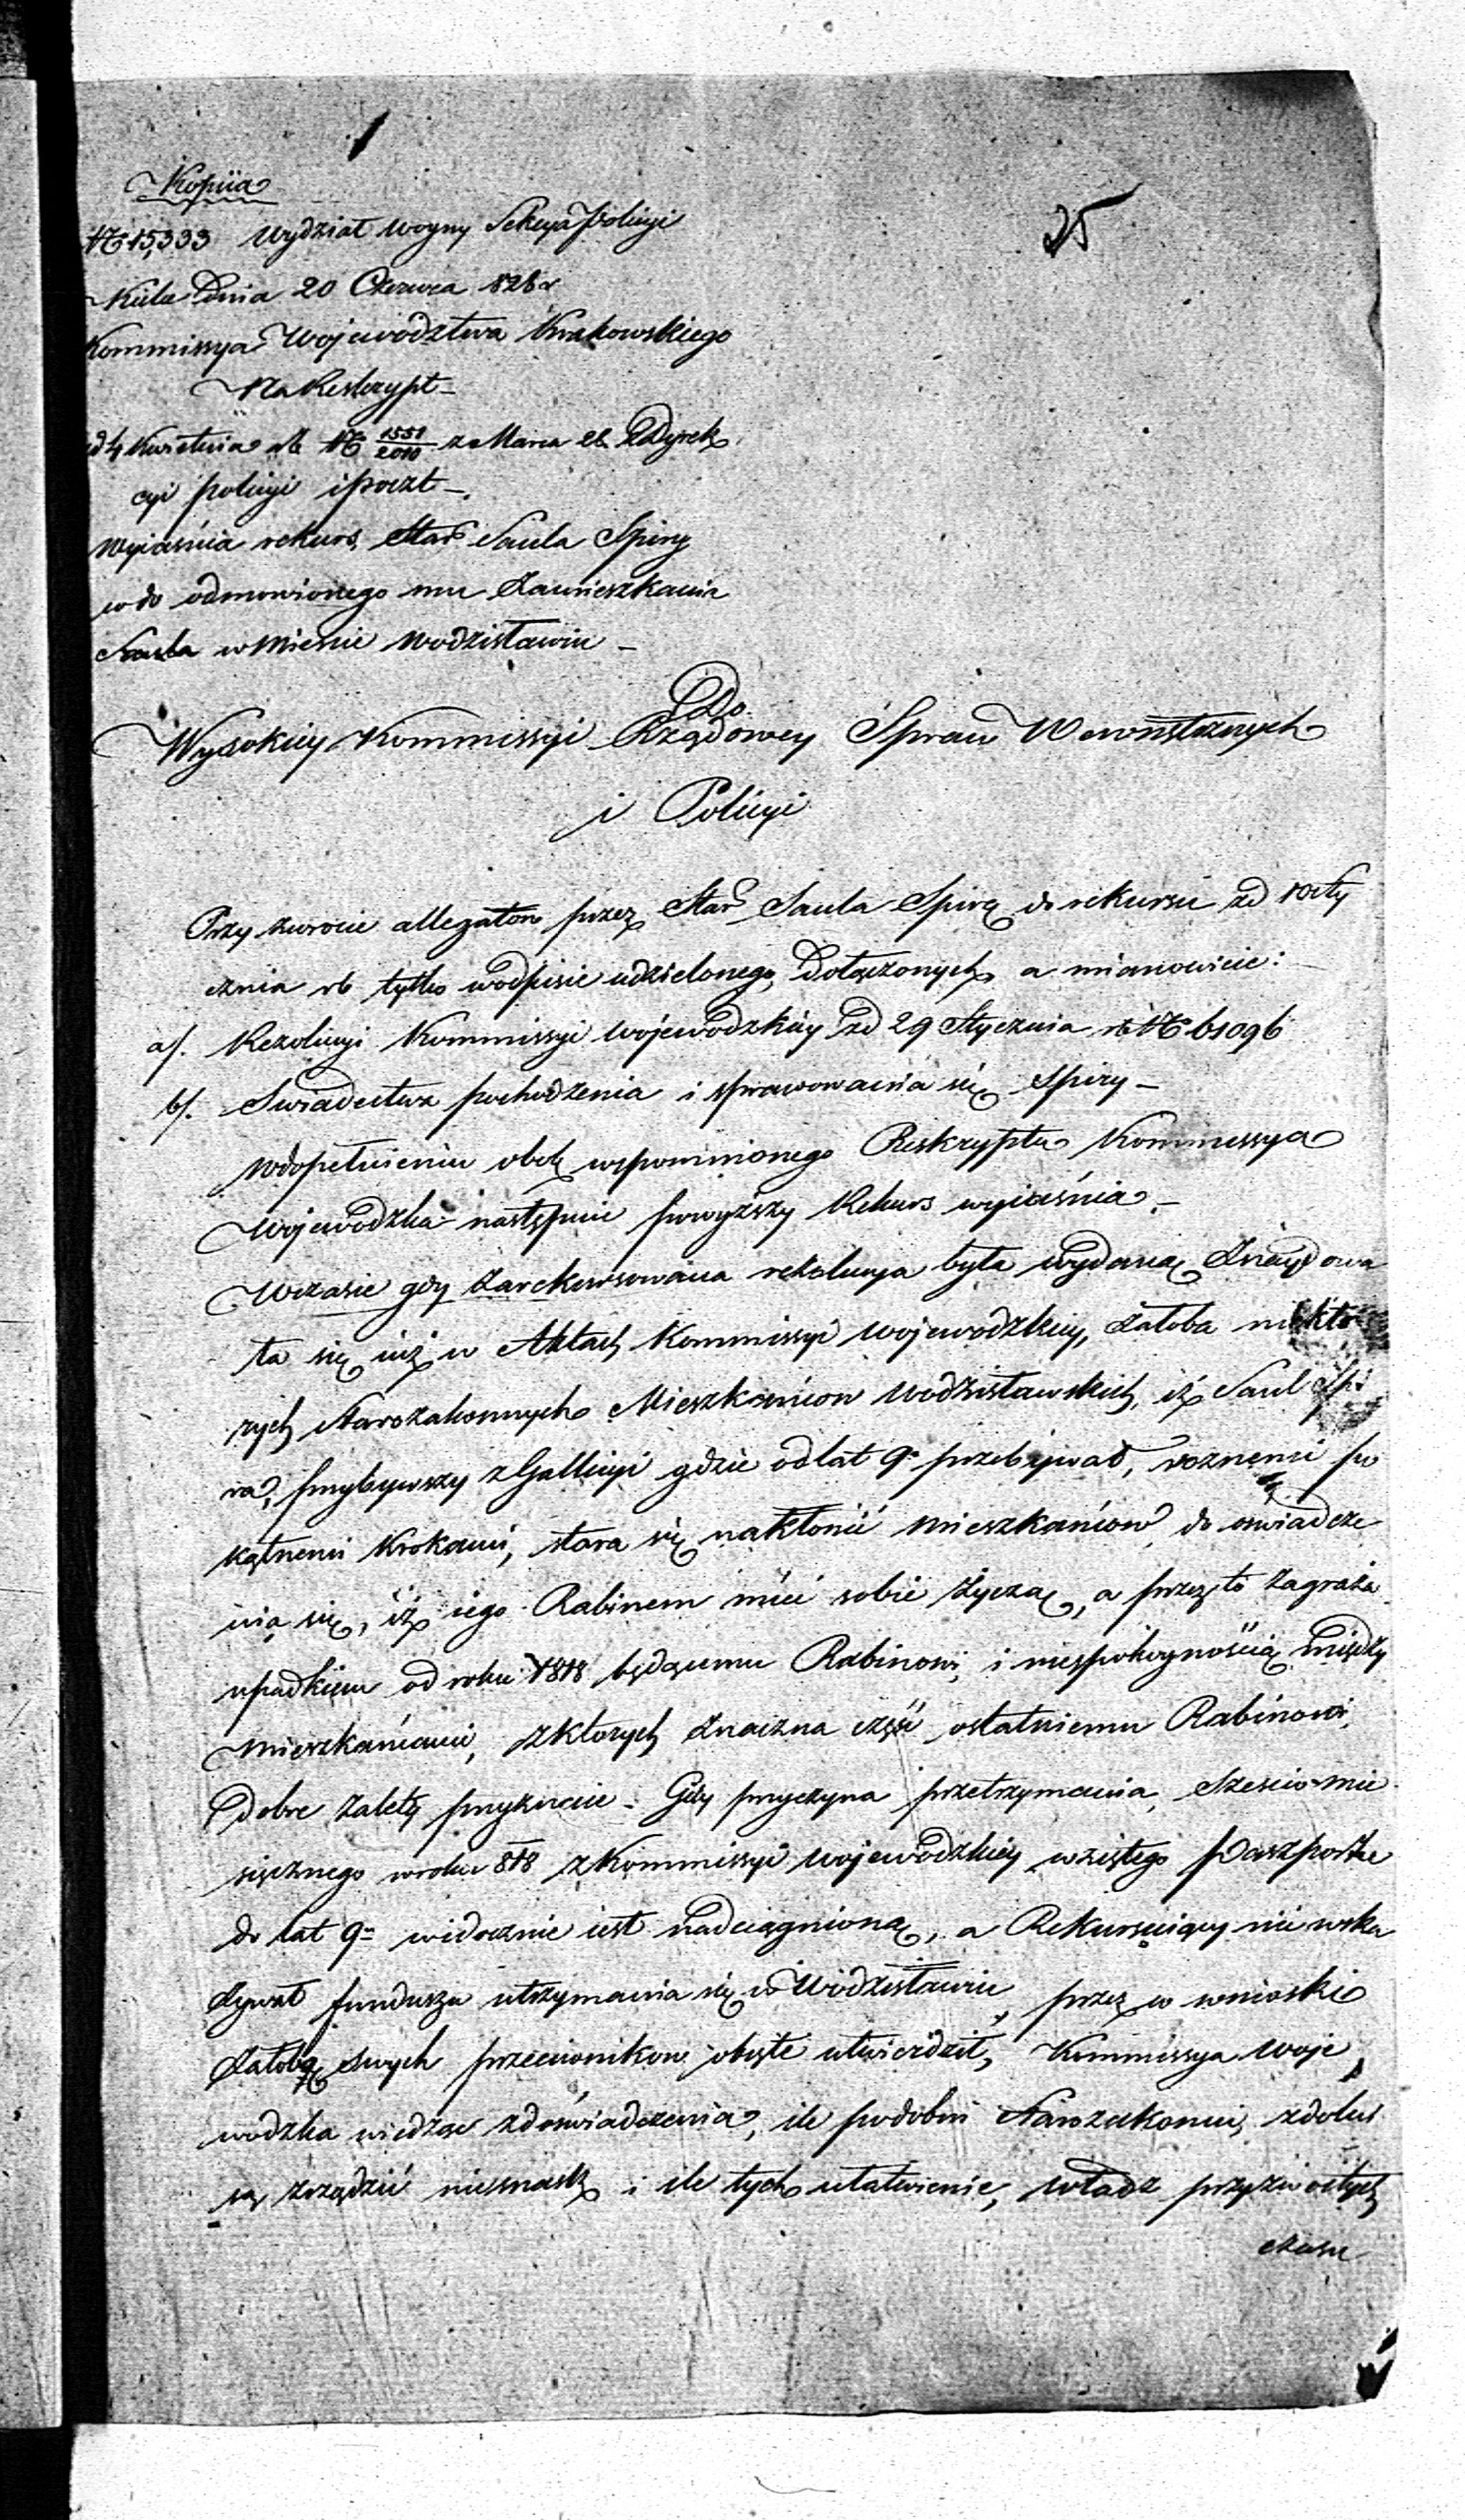 Kopiia
25
N 15,333 Wydział Woyny Sekcya Policyi
Kielce Dnia 20 Czerwca 1828 r
Kommissya Woiewództwa Krakowskiego
Na Reskrypt
od 4 Kwietnia rb N 1551/2010 z Marca 28 Dyrek
cyi Policyi i Poczt
Wyiaśnia rekurs Star Saula Spiry
wdo odmowionego mu Zamieszkania
w Mieście Wodzisławiu
Do
Wysokiey Kommissyi Rządowey Spraw Wewnętrznych
i Policyi
Przy zwrocie allegatow przez Star Saula Spirę do rekursu
rb tylko w odpisie udzielonego, dołączonych, a mianowicie:
a/. Rezolucyi Kommissyi Wojewodzkiey zd 29 Stycznia rb N 61096
b/. Swiadectwa pochodzenia i sprawowania się Spiry
Wdopełnieniu obok wspomnionego Reskryptu Kommissya
Wojewodzka następnie powyższy Rekurs wyiaśnia.
Wczasie gdy zarekursowana rezolucya była wydaną, znaydowa
ła się iuż w Aktach Kommissyi Wojewodzkiey, żałoba niektó
rych Starozakonnych Mieszkańców Wodzisławskich, iż Saul Spi
ra, przybywszy z Gallicyi gdzie od lat 9 przebywał, roznemi po
kątnemi Krokami, stara się nakłonić Mieszkańcow do oświadcze
nia się, iż iego Rabinem mieć sobie życzą, a przez to zagraża
upadkiem od roku 1818 będącemu Rabinowi, i niespokoynością między
Mieszkańcami, z których znaczna część ostatniemu Rabinowi
dobre zalety przyznaie. Gdy przyczyna przetrzymania, sześcio mie
sięcznego wroku 818 z Kommissyi Wojewodzkiey wziętego Paszportu
do lat 9 widocznie iest nadciągnioną, a Rekursuiący nie wska
zywał funduszu utrzymania się w Wodzisławiu, przez co wnioski
Żałobą swych przeciwnikow obięte utwierdził, Kommissya Woje
wodzka wiedząc z doświadczenia, ile podobni Starozakonni, zdolni
są zrządzić niesnask i ile tych ułatwienie, Władz przyzwoitych
czasu